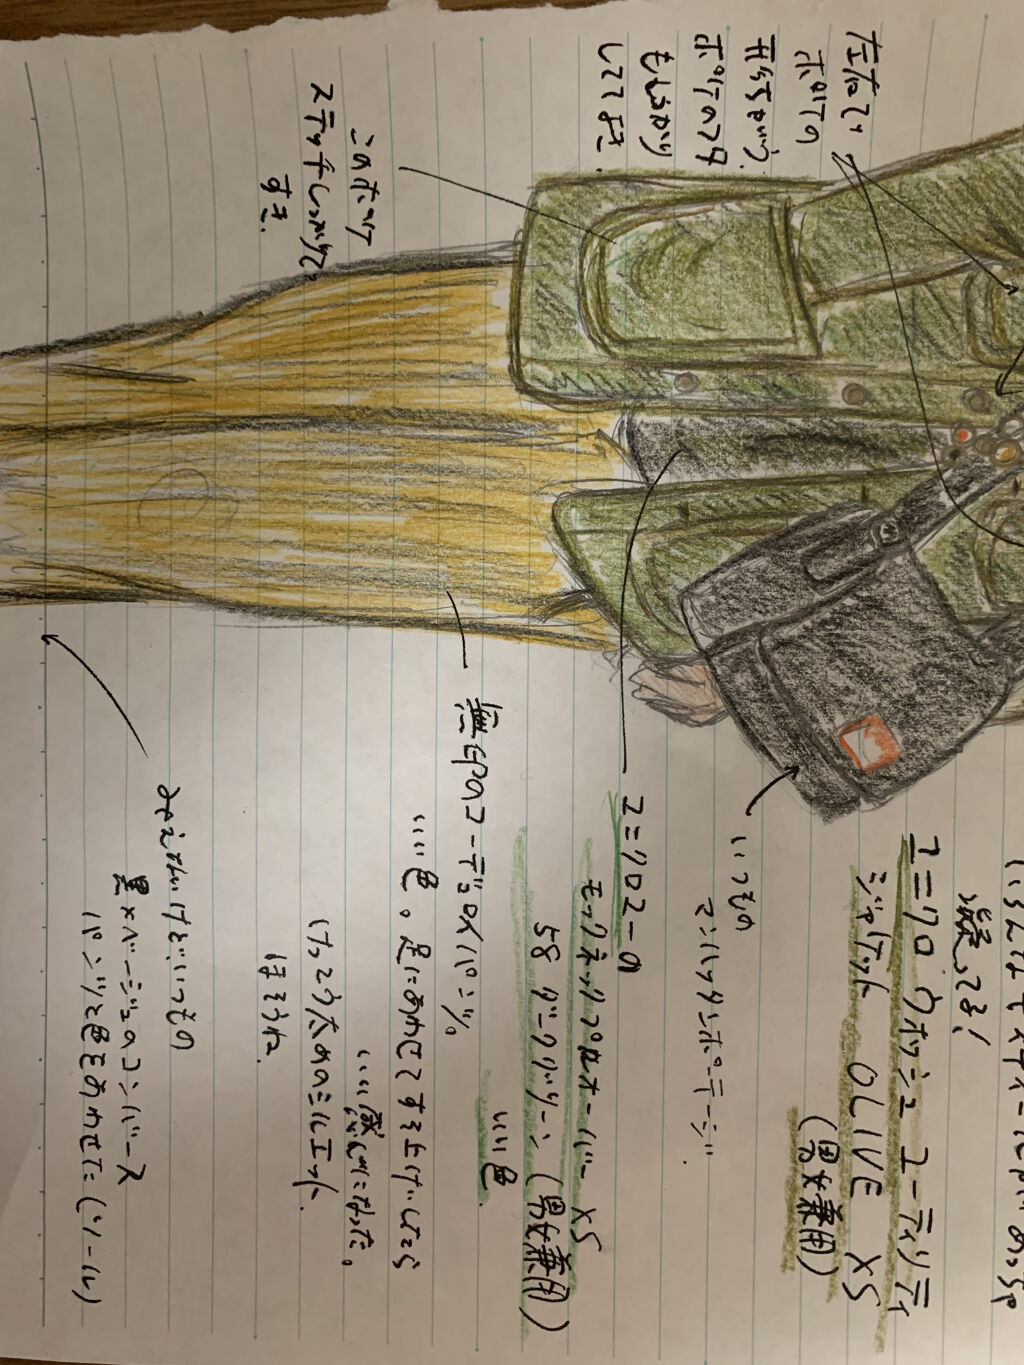 左右で
ポケットの
形がちがう。
ポケットのフタ
もしっかり
してて よき.
このポケット
ステッチしっかりで
すき.
凝ってる!
ユニクロ ウォッシュ ユーティリティ
ジャケット OLIVE XS
(男女兼用)
いつもの
マンハッタンポーテージ.
ユニクロユーの
モックネックプルオーバー XS
58 ダークグリーン (男女兼用)
いい色.
無印のコーデュロイパンツ。
いい色。足にあわせてすそ上げしたら
いい感じになった。
けっこう太めのシルエット.
みえないけどいつもの
黒×ベージュのコンバース
パンツと色をあわせた(ソール)